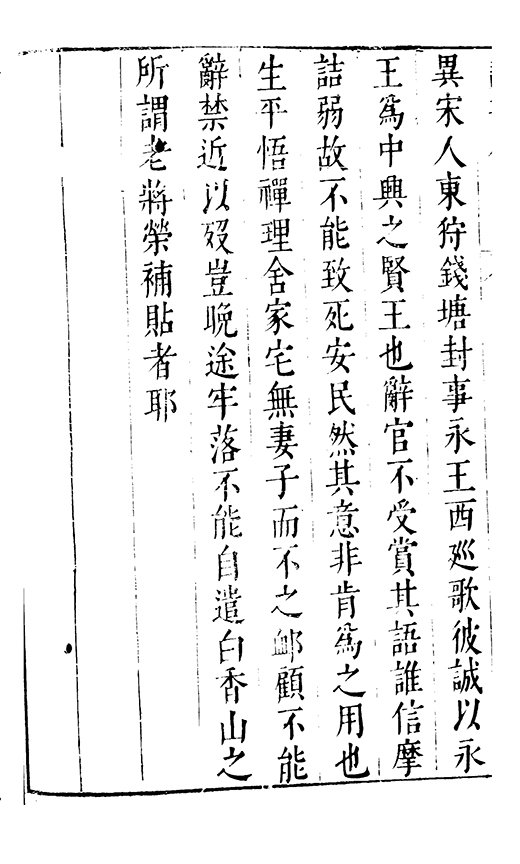 異宋人東狩錢塘封事永王西廵歌彼誠以永
王爲中興之賢王也辭官不受賞其語誰信摩
詰弱故不能致死安民然其意非肯爲之用也
生平悟禪理舍家宅無妻子而不之䘏顧不能
辭禁近以歿豈晚途牢落不能自遣白香山之
所謂老將榮補貼者耶